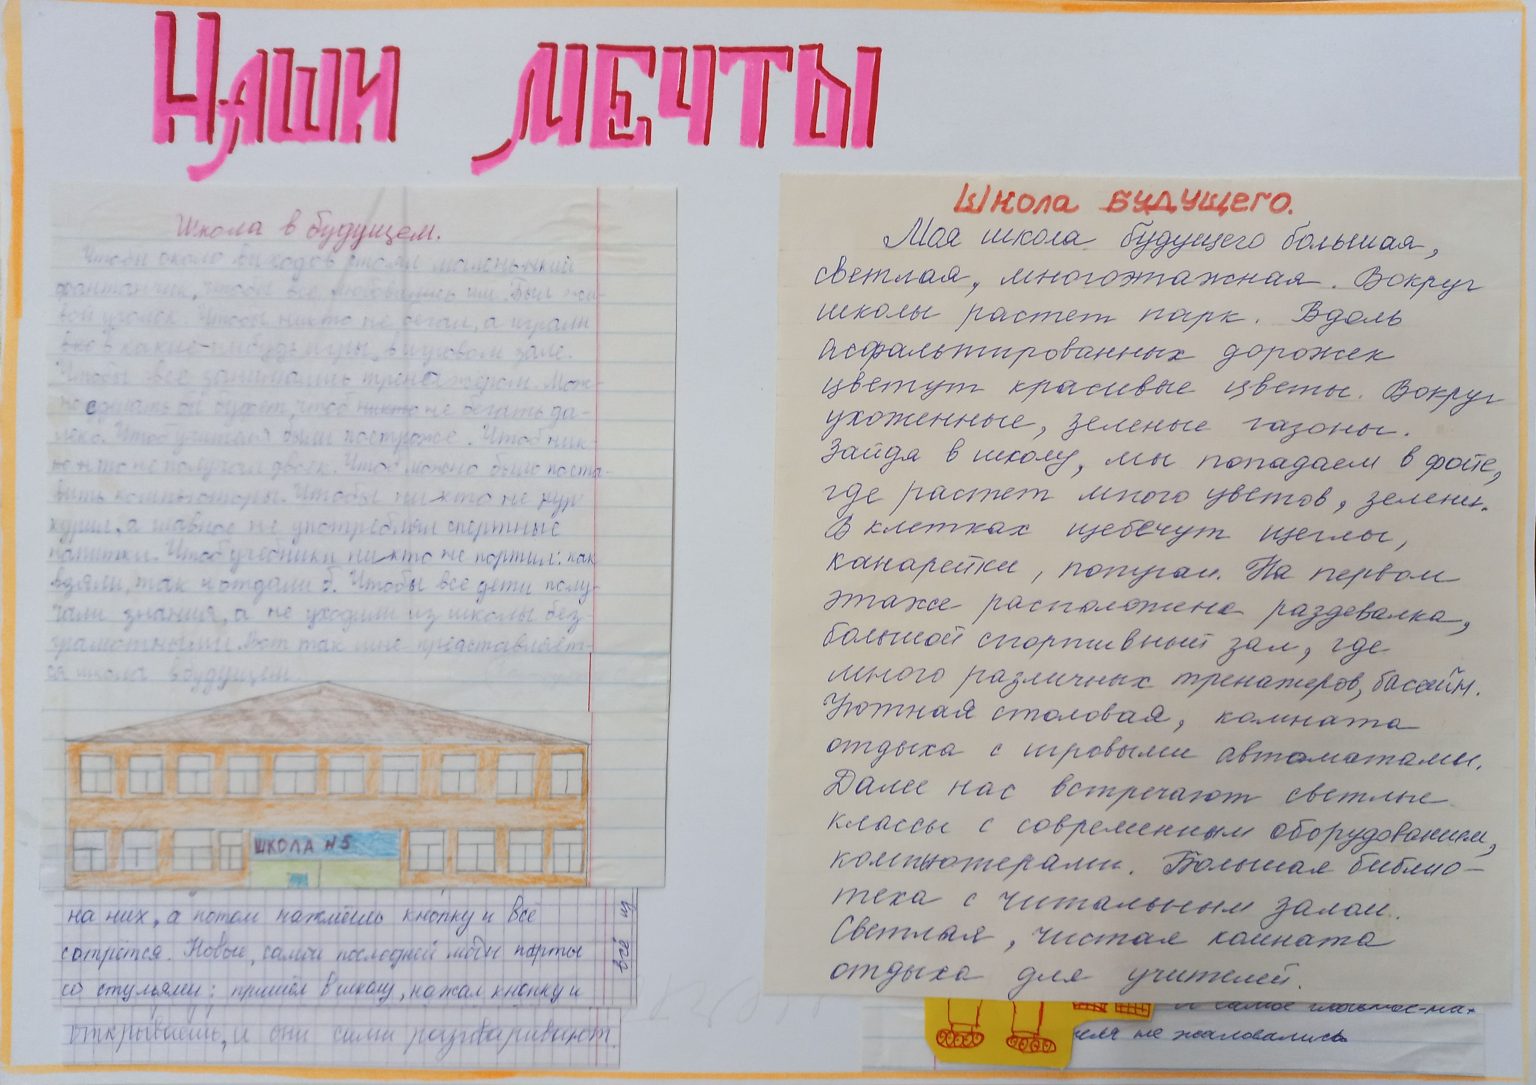 Наши мечты
Школа в будущем.
Чтобы около выходов стоял маленький
фонтанчик, чтобы все любовались им. Был жи-
вой уголок. Чтобы никто не бегал, а играли
все в какие-нибудь игры, в игровом зале.
Чтобы все занимались тренажером. Мож-
но сделать бы буфет, чтоб никто не бегать да-
леко. Чтоб учителя были построже. Чтоб ник-
то не получал двоек. Чтоб можно было поста-
вить компьютеры. Чтобы никто не
курил, а главное не употреблял спиртные
напитки. Чтоб учебники никто не портил: как
взяли, так и отдали б. Чтобы все дети полу-
чали знания, а не уходили из школы без-
грамотными. Вот так мне представляет-
ся школа в будущем.
ШКОЛА №5
на них, а потом нажмёшь кнопку и всё
сотрётся. Новые, самой последней моды парты
со стульями: пришёл в школу, нажал кнопку и
всё из
открываешь, и они сами разговаривают.
Школа будущего.
Моя школа будущего большая,
светлая, многоэтажная. Вокруг
школы растет парк. Вдоль
асфальтированных дорожек
цветут красивые цветы. Вокруг
ухоженные, зеленые газоны.
Зайдя в школу, мы попадаем в фойе,
где растет много цветов, зелени.
В клетках щебечут щеглы,
канарейки, попугаи. На первом
этаже расположена раздевалка,
большой спортивный зал, где
много различных тренажеров, бассейн.
Уютная столовая, комната
отдыха с игровыми автоматами.
Далее нас встречают светлые
классы с современным оборудованием,
компьютерами. Большая библио-
тека с читальным залом.
Светлая, чистая комната
отдыха для учителей.
и самое главное-на-
не жаловались